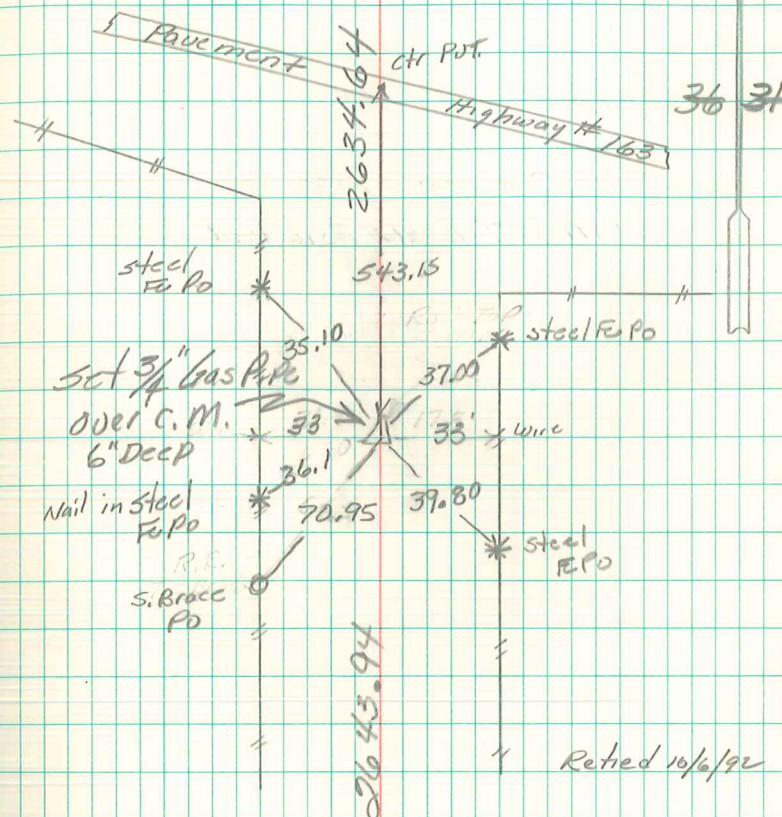 Pavement
ctr PVT.
Highway # 163
36 31
2634.64
steel
Fe Po
543.15
35.10
steel Fe Po
37.00
Set 3/4" Gas Pipe
over C.M.
6" Deep
33
33'
wire
36.1
Nail in steel
Fe Po
70.95
39.80
steel
Fe Po
S. Brace
Po
2643.94
Retied 10/6/92